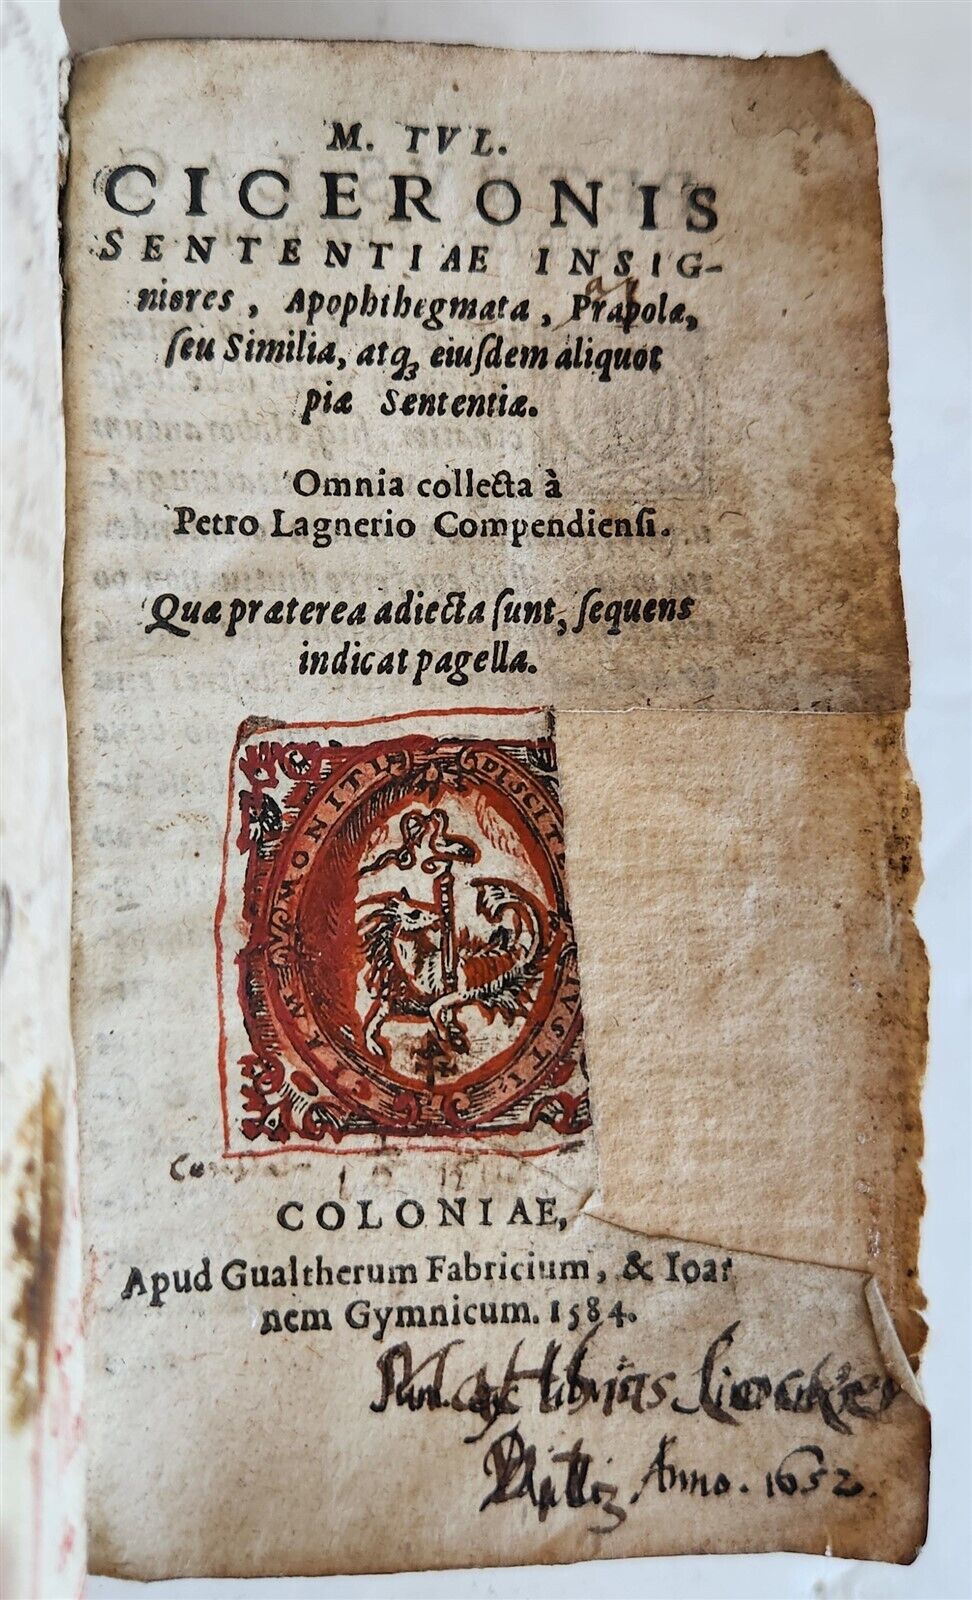 M. TVL.
CICERONIS
SENTENTIAE INSIG-
niores, Apophthegmata, Prapolæ,
ſeu Similia, atq₃ eiuſdem aliquot
piæ Sententiæ.
Omnia collecta à
Petro Lagnerio Compendienſi.
Quæ præterea adiecta ſunt, ſequens
indicat pagella.
DISCITE IVSTI MONITI
COLONIAE,
Apud Gualtherum Fabricium, & Ioan
nem Gymnicum. 1584.
libris
Anno. 1652.